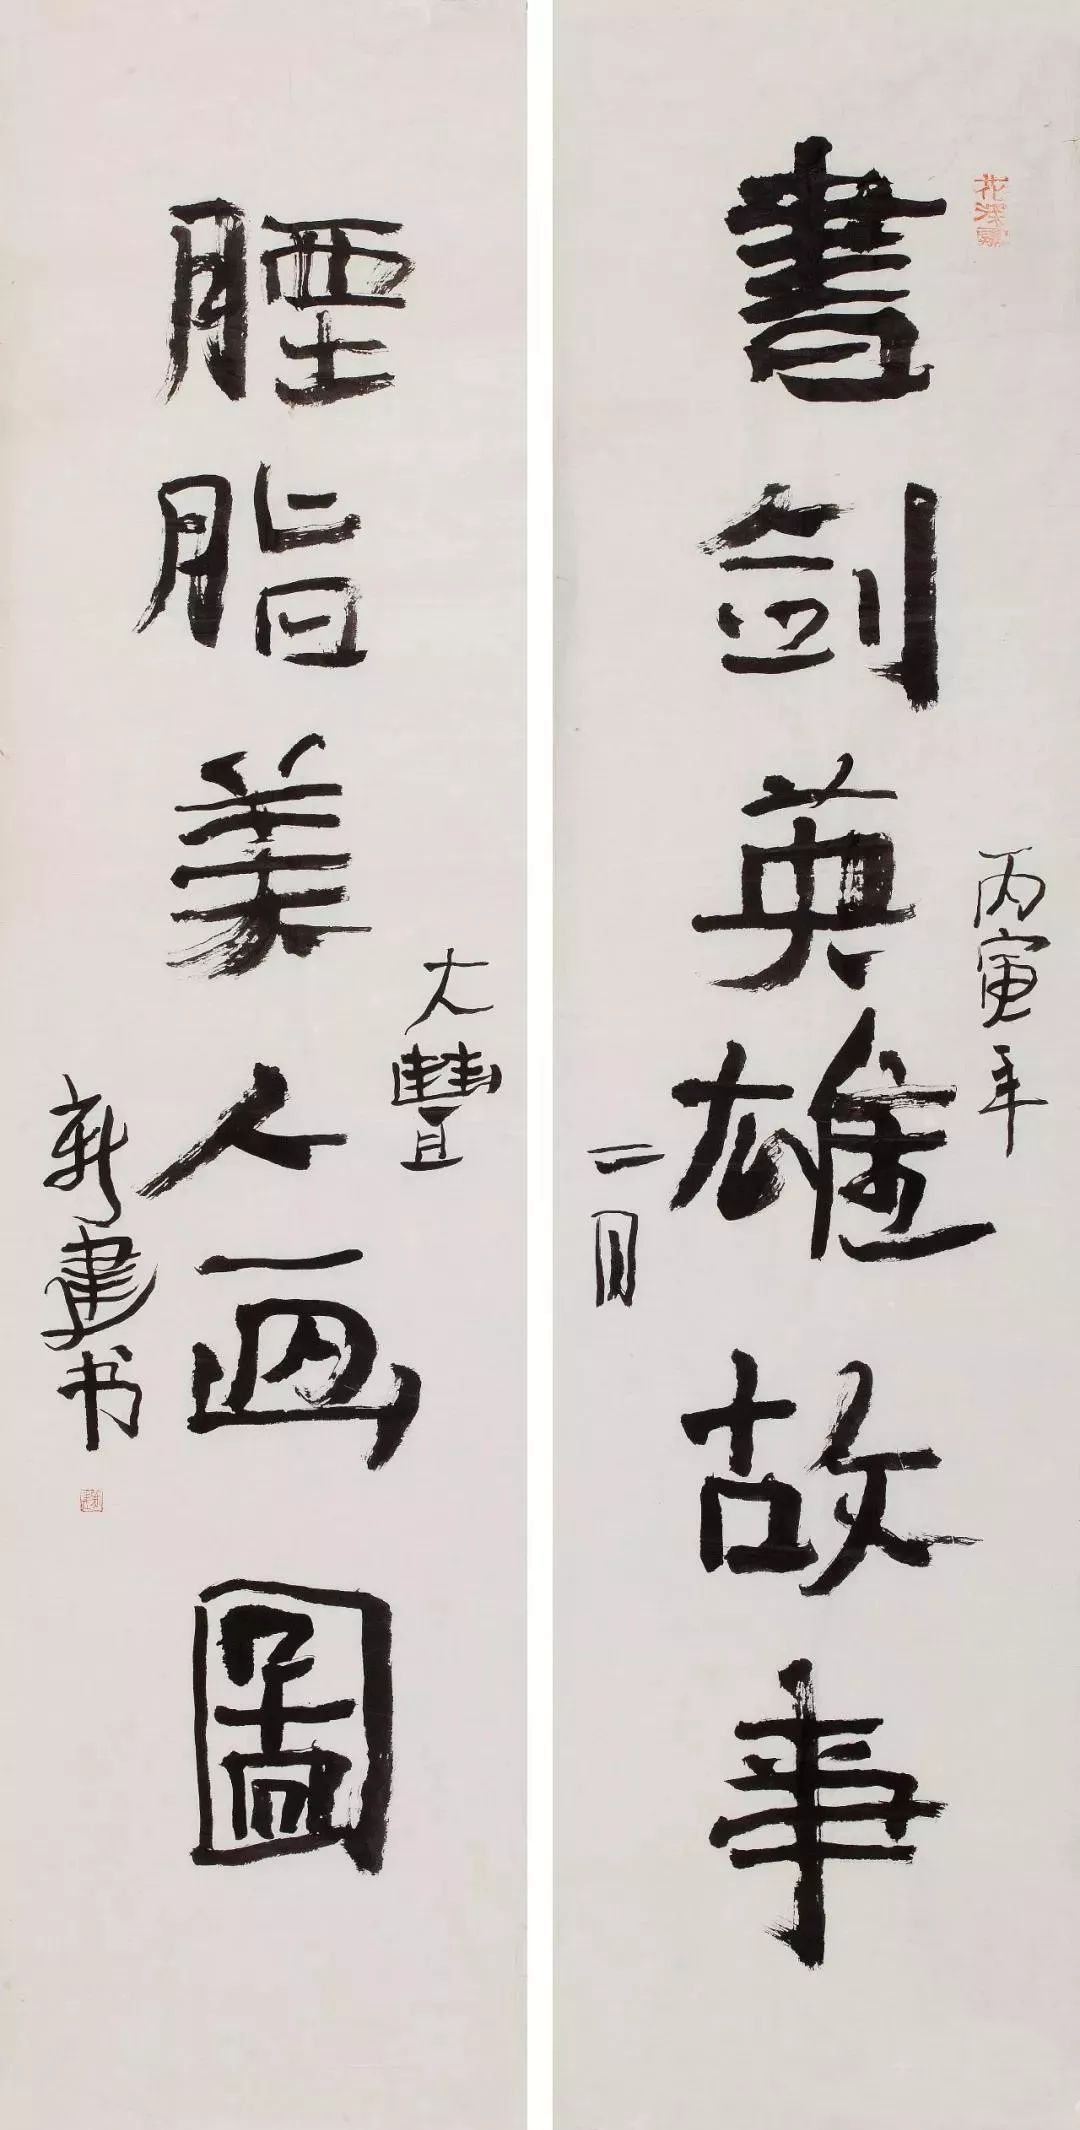 書劍英雄故事
丙寅年
二月
腥脂美人畫圖
大豐
新建书